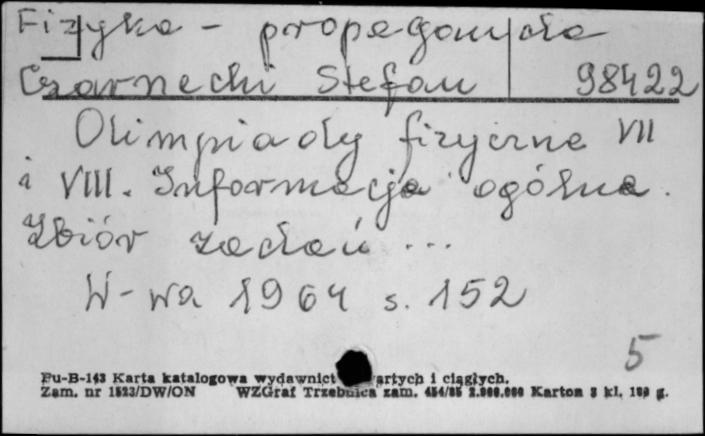 Fizyka - propaganda
Czarnecki Stefan 98422
Olimpiady fizyczne VII
i VIII. Informacja ogólna.
Zbiór zadań ...
W-wa 1964 s. 152
5
Pu-B-143 Karta katalogowa wydawnict artych i ciągłych.
Zam. nr 1523/DW/ON WZGraf Trzebnica zam. 454/85 2.000.000 Karton 3 kl. g.